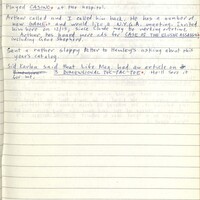 Played CASINO at the hospital.
Arthur called and I called him back. He has a number of
new GAMES and would like a N.Y.G.A. meeting. Invited
him here on 12/17, since Claude may be working overtime.
Arthur too heard more ads for CASE OF THE ELUSIVE ASSASSIN
including Gene Shepherd.
Sent a rather sloppy letter to Hawley's asking about this
year's catalog.
Sid Carlan said that Like Mag. had an article on
3 DIMENSIONAL TIC-TAC-TOE, she'll save it
for me.